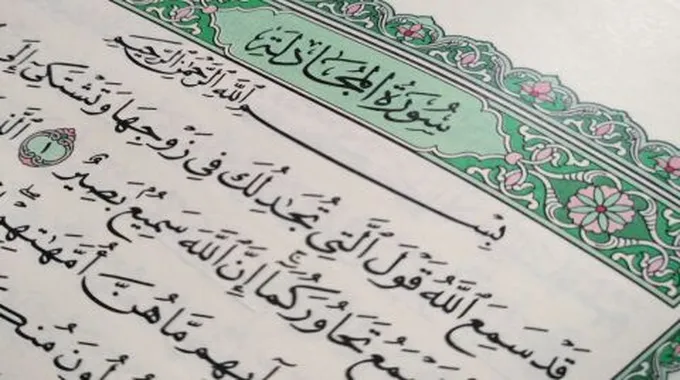 سُورَةُ المُجَادلَةِ
بِسْمِ ٱللَّهِ ٱلرَّحْمَٰنِ ٱلرَّحِيمِ
قَدْ سَمِعَ ٱللَّهُ قَوْلَ ٱلَّتِي تُجَٰدِلُكَ فِي زَوْجِهَا وَتَشْتَكِىٓ إِلَى
تَحَاوُرَكُمَآ إِنَّ ٱللَّهَ سَمِيعٌۢ بَصِيرٌ ١
مَّا هُنَّ أُمَّهَٰتِهِمْ